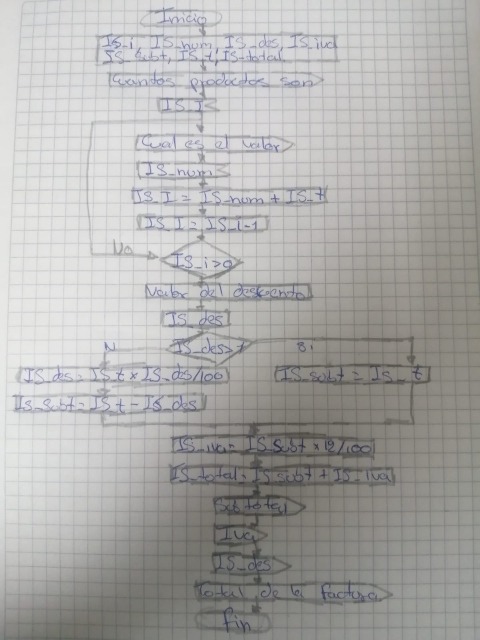 Inicio
IS_i, IS_num, IS_des, IS_iva
IS_subt, IS_t, IS_total
Cuantos productos son
IS_IS
Cual es el valor
IS_num
IS_I = IS_num + IS_t
IS_I = IS_i-1
No
IS_i>0
Valor del descuento
IS_des
N
IS_des>
Si
IS_des = IS_t x IS_des/100
IS_subt = IS_t
IS_subt = IS_t - IS_des
IS_iva = IS_subt x 12/100
IS_total = IS_subt + IS_iva
Subtotal
Iva
IS_des
Total de la factura
fin